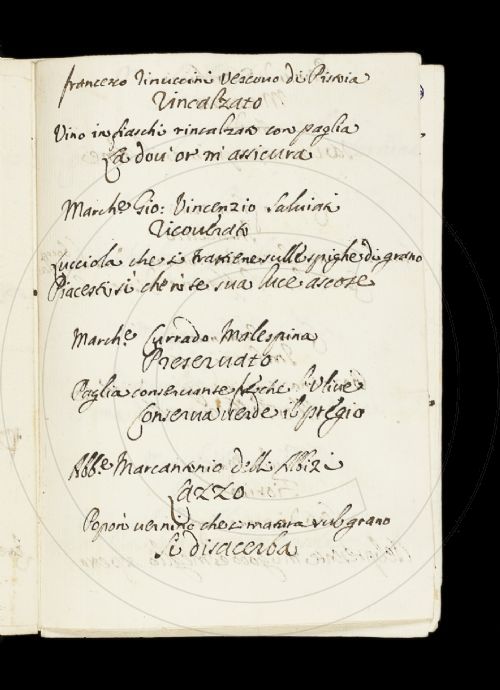 Francesco Rinuccini Vescovo di Pistoia
Rincalzato
Vino in fiaschi rincalzati con paglia
La dov' or m' assicura
March.e Gio: Vincenzio Salviati
Ricoverato
Lucciola che si trattiene sulle spighe di grano
Piacesti sì che in te sua luce ascose
March.e Currado Malespina
Preservato
Paglia conservante fresche l' Ulive
Conserva verde il pregio
Abb.e Marcantonio degli Albizi
Lazzo
Popon vernino che si matura sul grano
Si disacerba